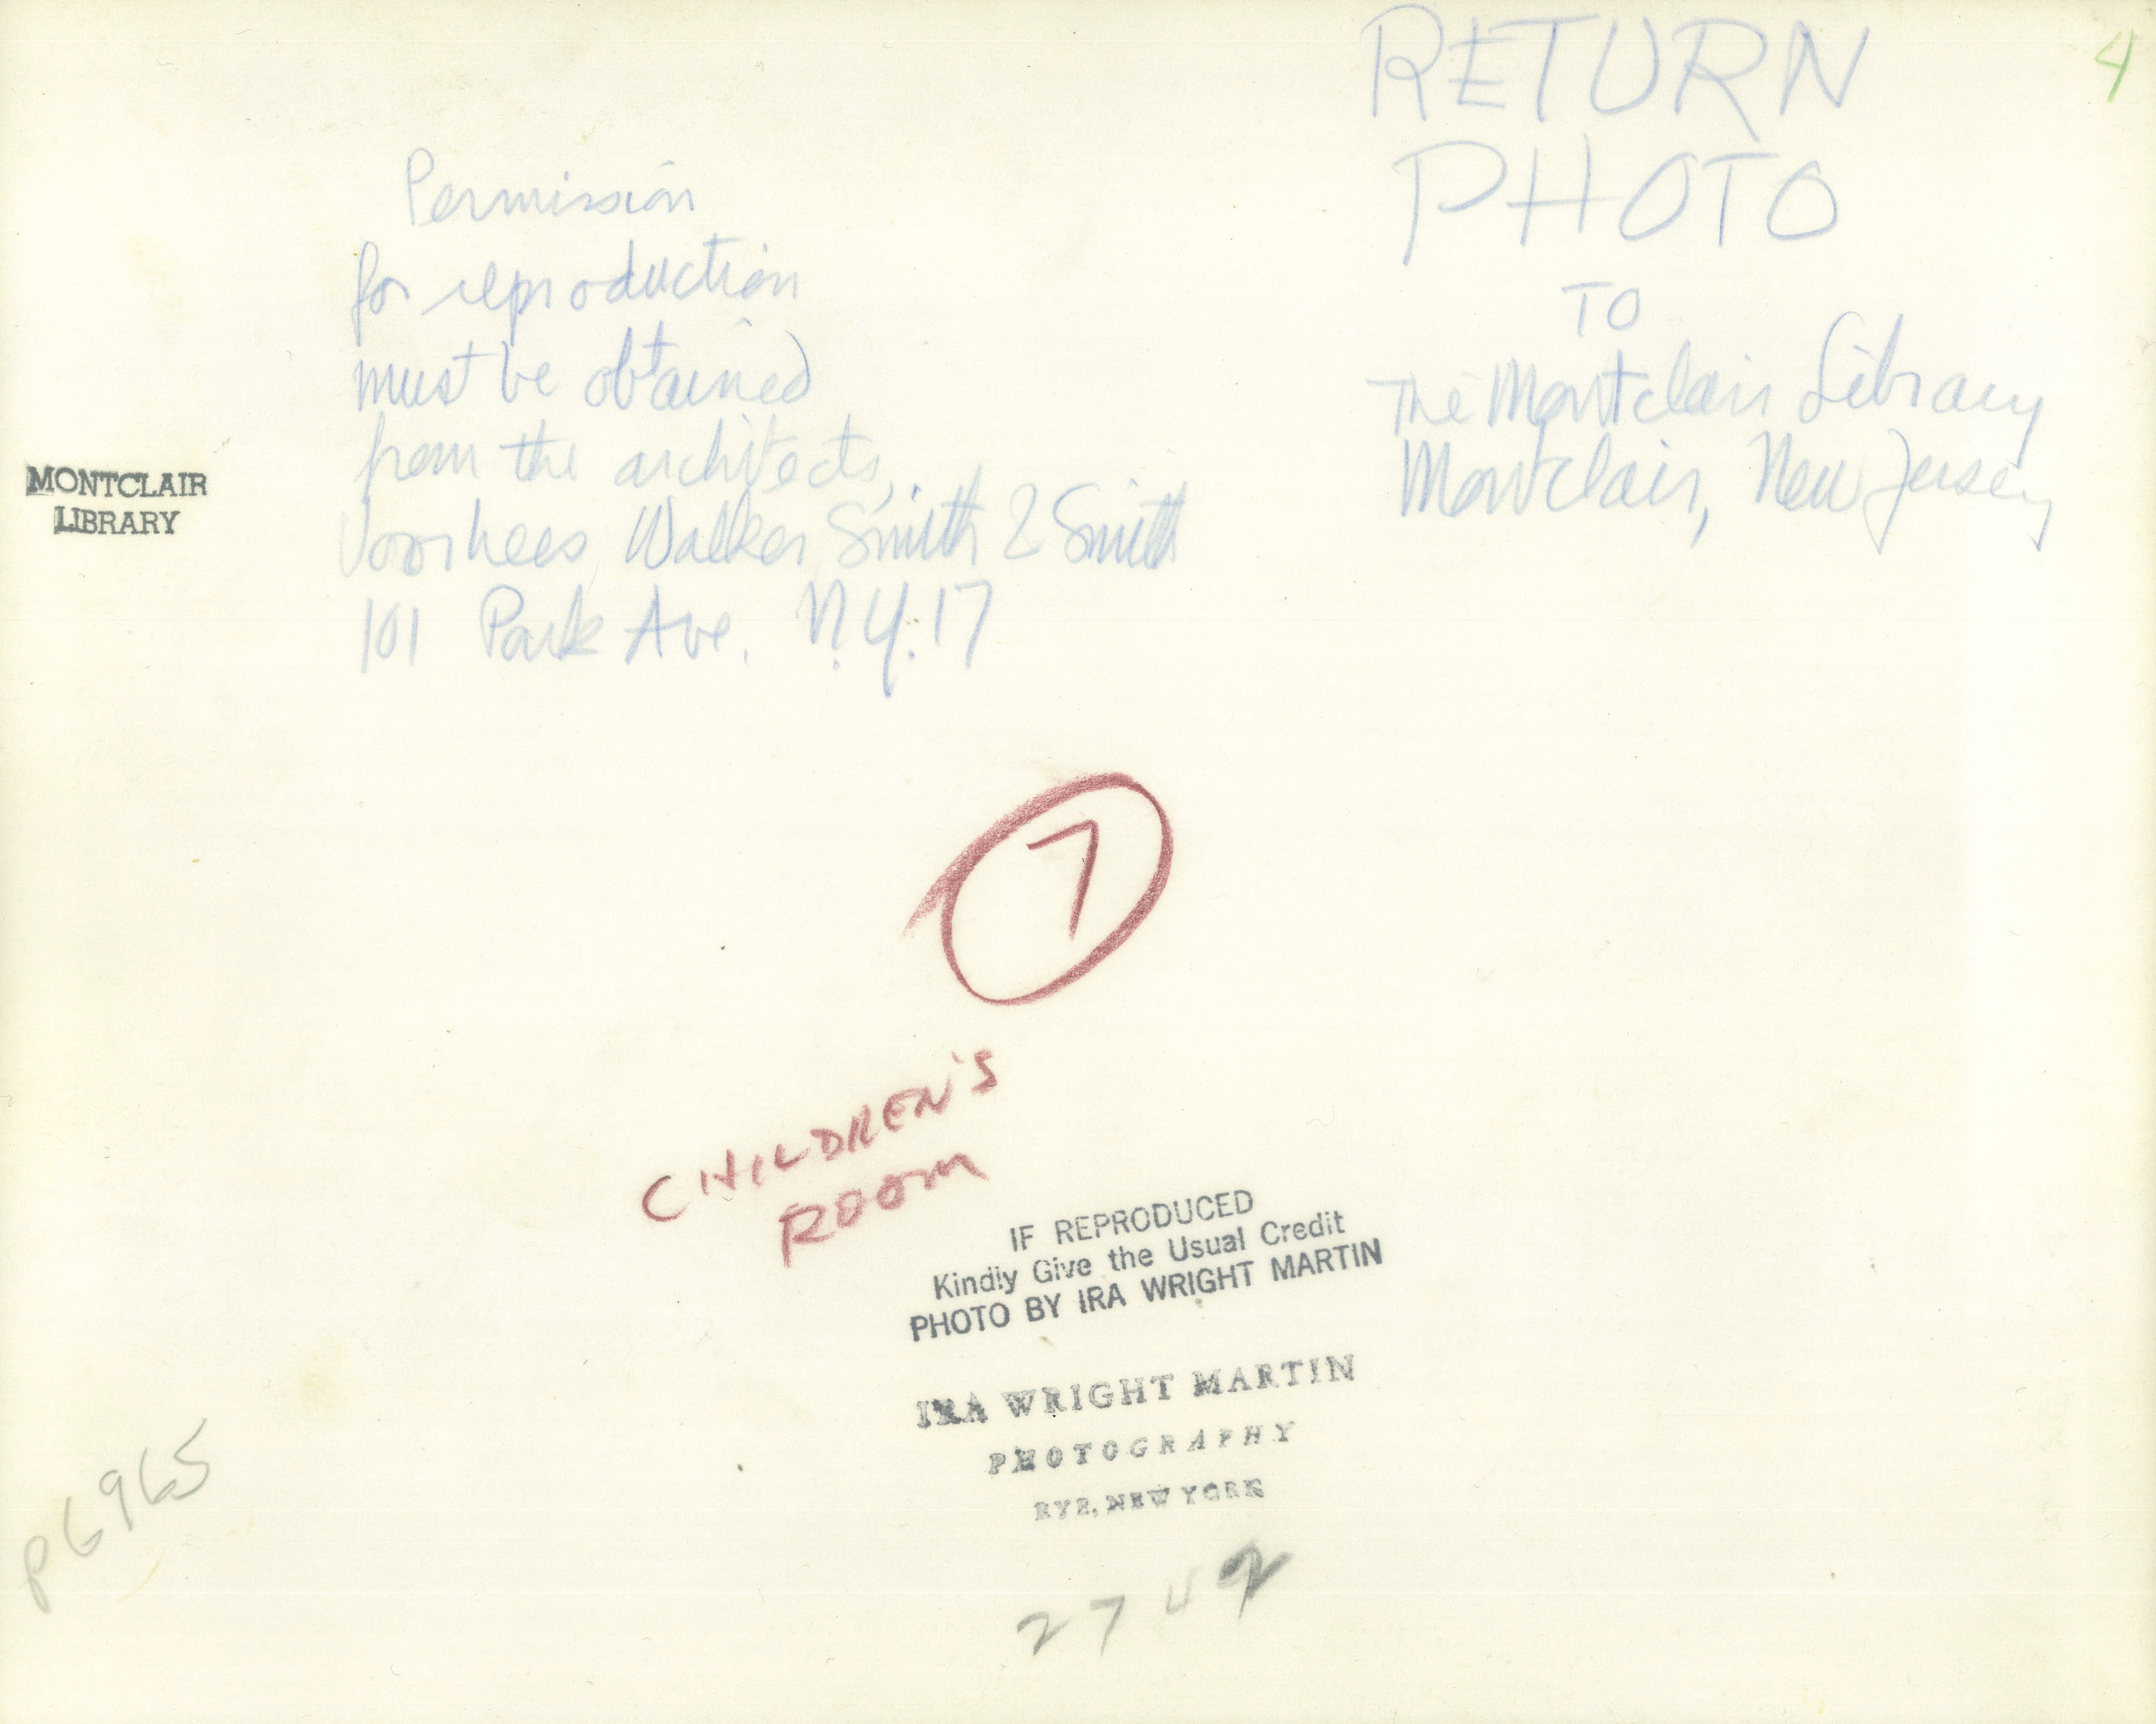 4
RETURN
PHOTO
TO
The Montclair Library
Montclair, New Jersey
Permission
for reproduction
must be obtained
from the architects,
Voorhees Walker Smith & Smith
101 Park Ave. N.Y. 17
MONTCLAIR
LIBRARY
7
CHILDREN'S
ROOM
IF REPRODUCED
Kindly Give the Usual Credit
PHOTO BY IRA WRIGHT MARTIN
IRA WRIGHT MARTIN
PHOTOGRAPHY
RYE, NEW YORK
P6965